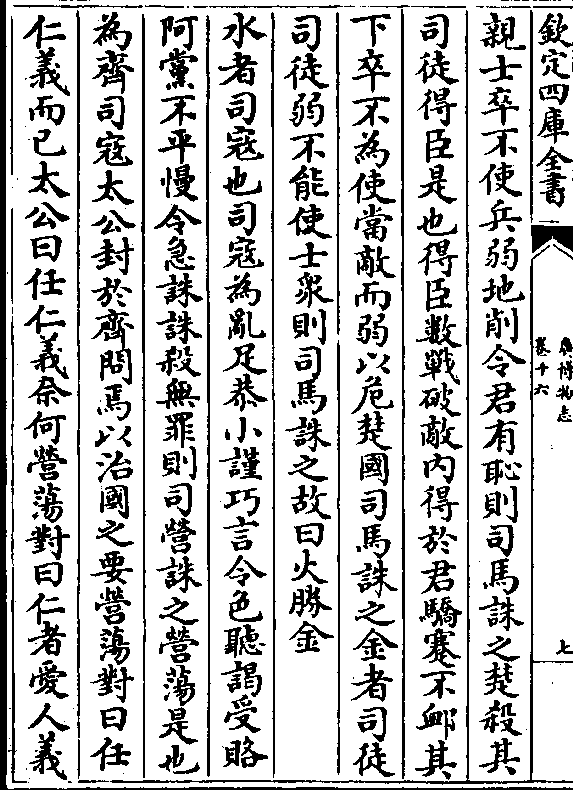 欽定四庫全書
廣博物志
卷十六
七
親士卒不使兵弱地削令君有恥則司馬誅之楚殺其
司徒得臣是也得臣數戰破敵内得於君驕蹇不卹其
下卒不為使當敵而弱以危楚國司馬誅之金者司徒
司徒弱不能使士衆則司馬誅之故曰火勝金
水者司寇也司寇為亂足恭小謹巧言令色聽謁受賂
阿黨不平慢令急誅誅殺無罪則司營誅之營蕩是也
為齊司寇太公封於齊問焉以治國之要營蕩對曰任
仁義而已太公曰任仁義奈何營蕩對曰仁者愛人義